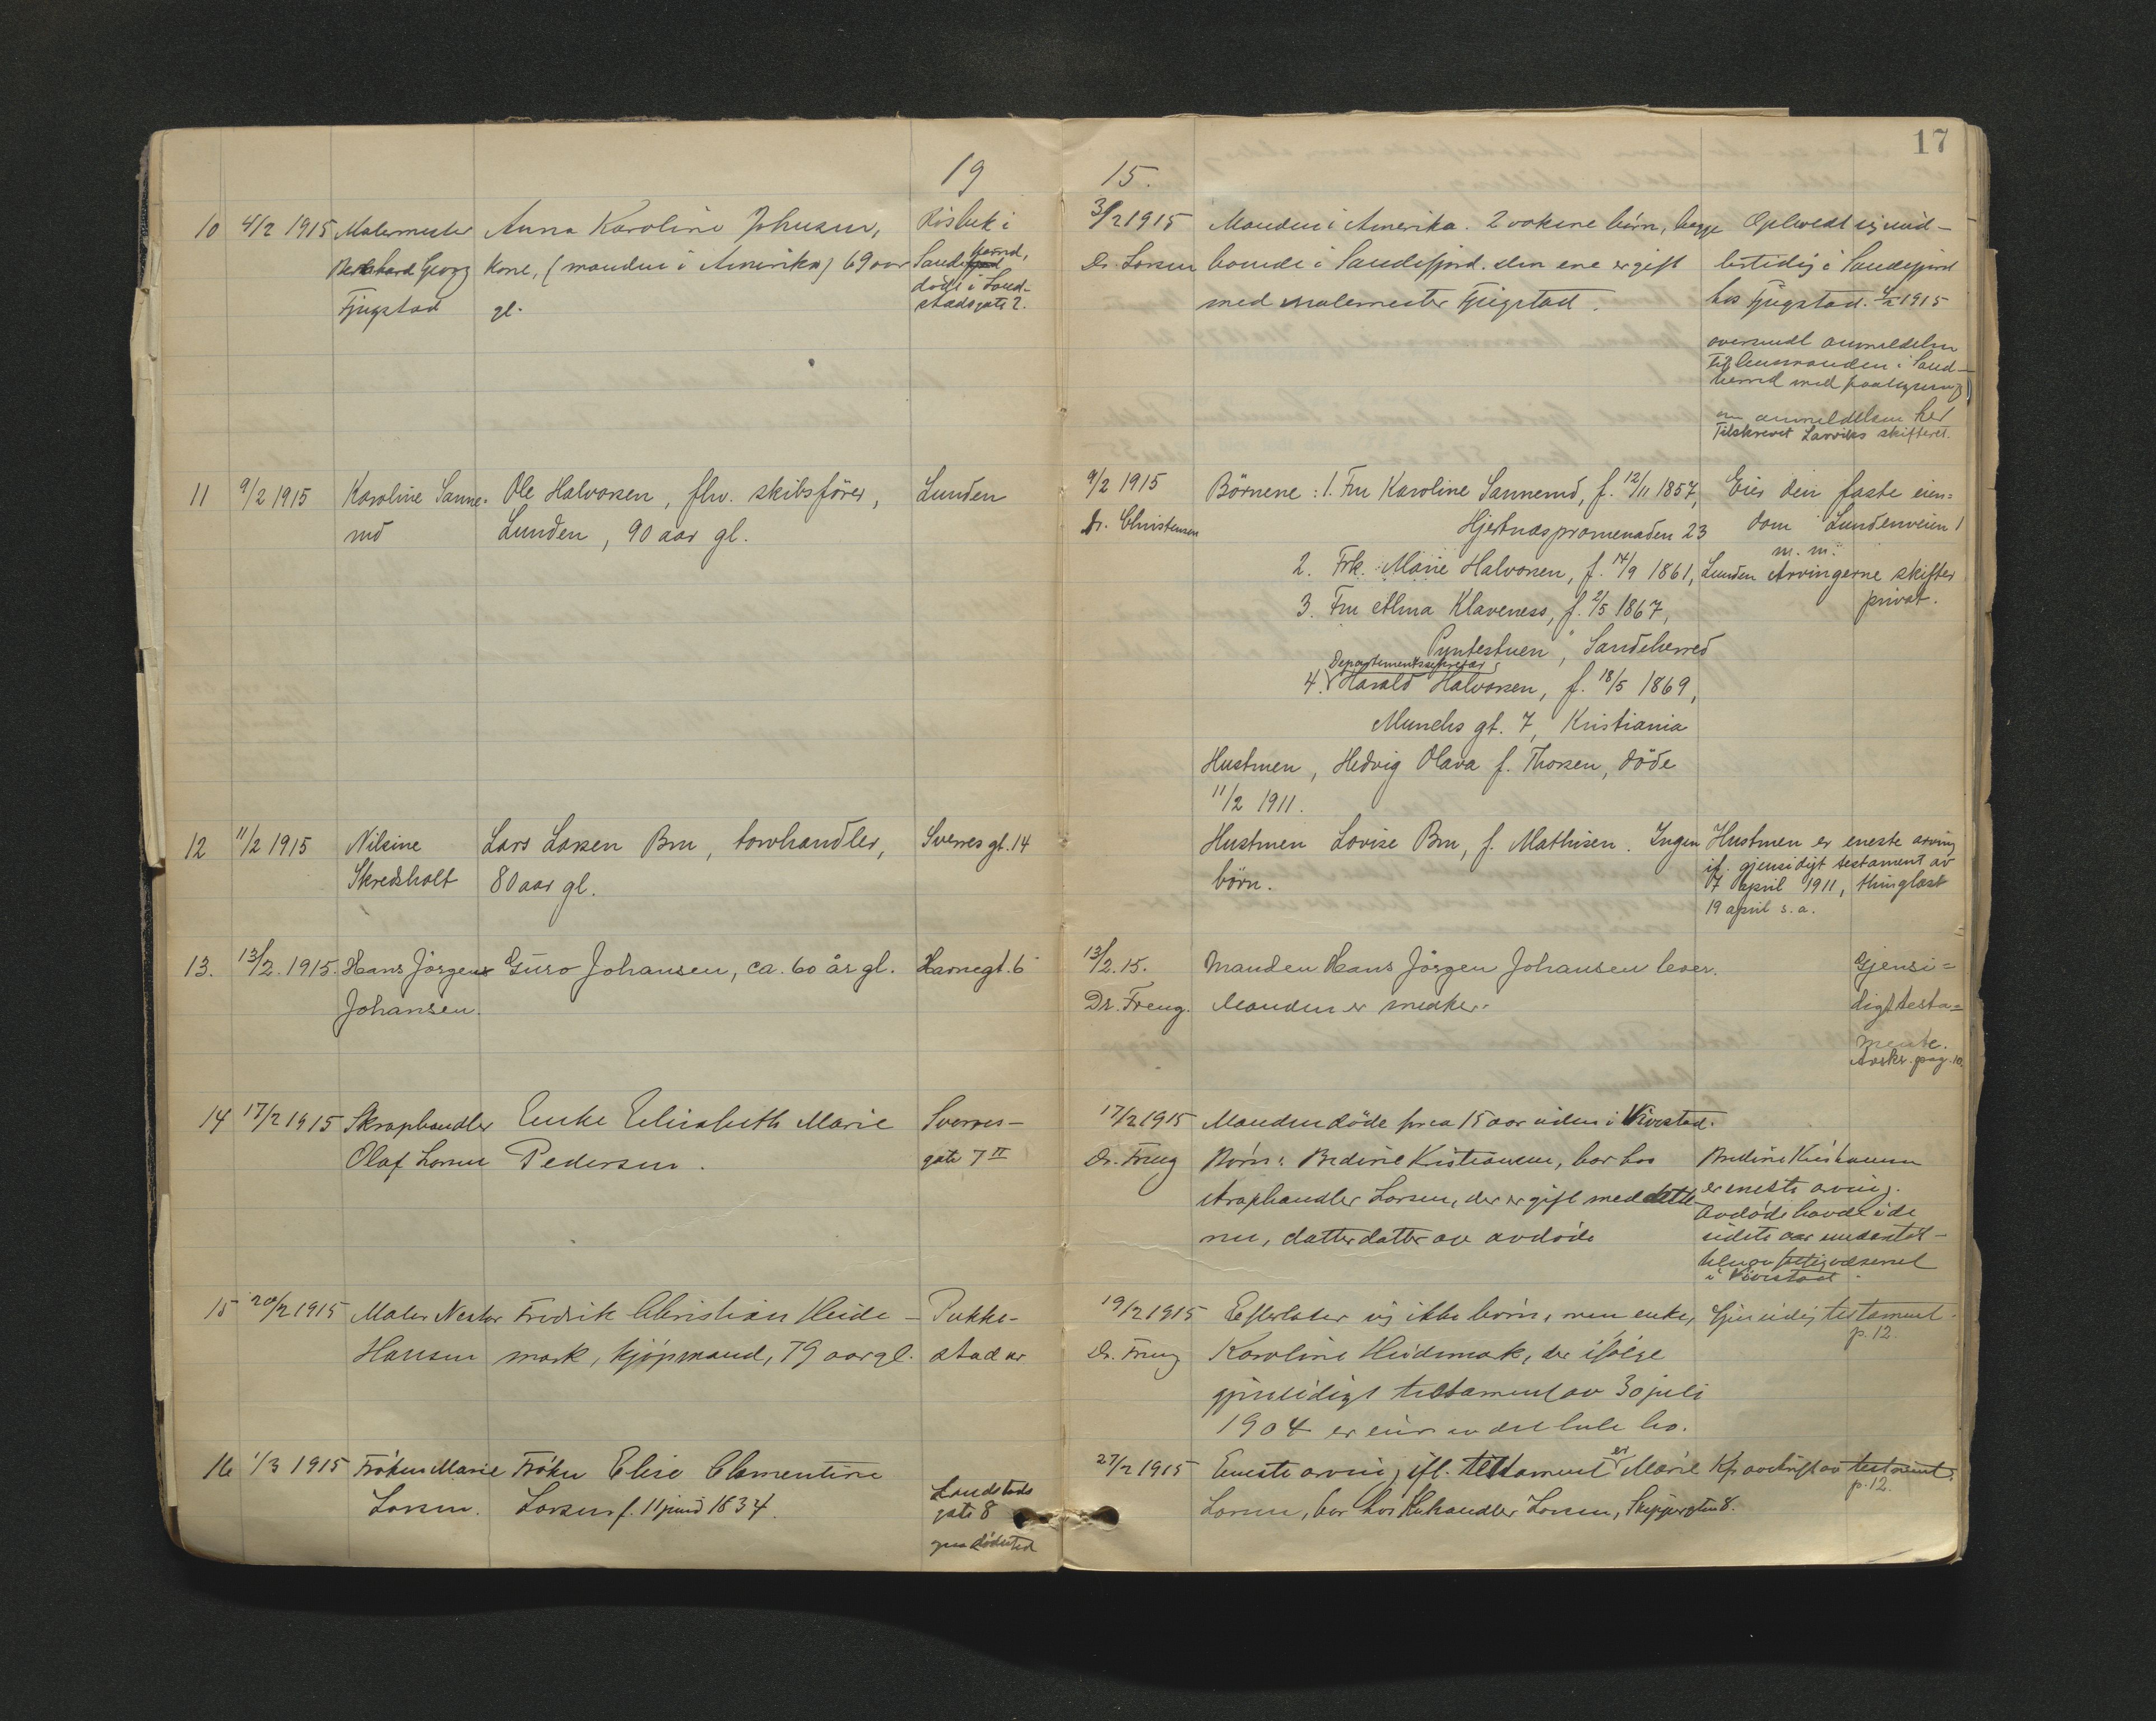 17
19 15.
10 4/2 1915 Malermester Anna Karoline Johnsen, Risbek i
Bernhard Georg kone, (manden i Amerika) 69 aar Sandeherred,
Fjugstad gl. døde i Land-
stadsgate 2.
3/2 1915 Manden i Amerika. 2 voksne børn, begge Opholdt sig mid-
Dr. Larsen boende i Sandefjord. den ene er gift lertidig i Sandefjord
med malermester Fjugstad. hos Fjugstad. 4/2 1915
oversendt anmeldelsen
til lensmanden i Sand-
herred med paategning
om anmeldelsen her
Tilskrevet Larviks skifteret.
11 9/2 1915 Karoline Sanne- Ole Halvorsen, fhv. skibsfører, Lunden
rud Lunden, 90 aar gl.
9/2 1915 Børnene: 1. Fru Karoline Sannerud, f. 12/11 1857, Eier den faste eien=
Dr. Christensen Hjertnæspromenaden 23 dom Lundenveien 1
m. m.
2. Frk. Marie Halvorsen, f. 14/9 1861, Lunden Arvingerne skifter
3. Fru Alma Klaveness, f. 2/5 1867, privat.
Pyntestuen, Sandeherred
Departementssekretær
4. Harald Halvorsen, f. 18/5 1869,
Munchs gt. 7, Kristiania
Hustruen, Hedvig Olava f. Thorsen, døde
11/2 1911.
12 11/2 1915 Nilsine Lars Larsen Bru, torvhandler, Sverres gt. 14
Skredsholt 80 aar gl.
Hustruen Lovise Bru, f. Mathisen. Ingen Hustruen er eneste arving
børn. if. gjensidigt testament av
7 april 1911, thinglæst
19 april s. a.
13. 13/2. 1915. Hans Jörgen Guro Johansen, ca. 60 år gl. Havnegt. 6
Johansen.
13/2. 15. Manden Hans Jörgen Johansen lever. Gjensi=
Dr. Freng. Manden er snedker. digt testa=
mente.
Avskr. pag. 10.
14 17/2 1915 Skraphandler Enke Elisabeth Marie Sverres-
Olaf Larsen Pedersen. gate 7 II
17/2 1915 Manden døde for ca 15 aar siden i
Dr. Freng Børn: Bredine Kristiansen, bor hos Bredine Kristiansen
skraphandler Larsen, der er gift med er eneste arving.
Avdøde havde i de
nu, datterdatter av avdøde sidste aar understøt-
telse av fattigvæsenet
i
15 20/2 1915 Maler Nestor Fredrik Christian Heide- Pukke-
Hansen mark, kjøpmand, 79 aar gl. stad
19/2 1915 Efterlater sig ikke børn, men enke, Gjensidig testament.
p. 12.
Dr. Freng Karoline Heidemark, der ifølge
gjensidigt testament av 30 juli
1904 er eier av det hele bo.
16 1/3 1915 Frøken Marie Frøken Elise Clementine Landstads
Larsen. Larsen f. 11 juni 1834. gate 8
dødssted
27/2 1915 Eneste arving, ifl. testament er Marie avskrift av testament.
p. 12.
Larsen, bor hos Larsen, Skippergaten 8.